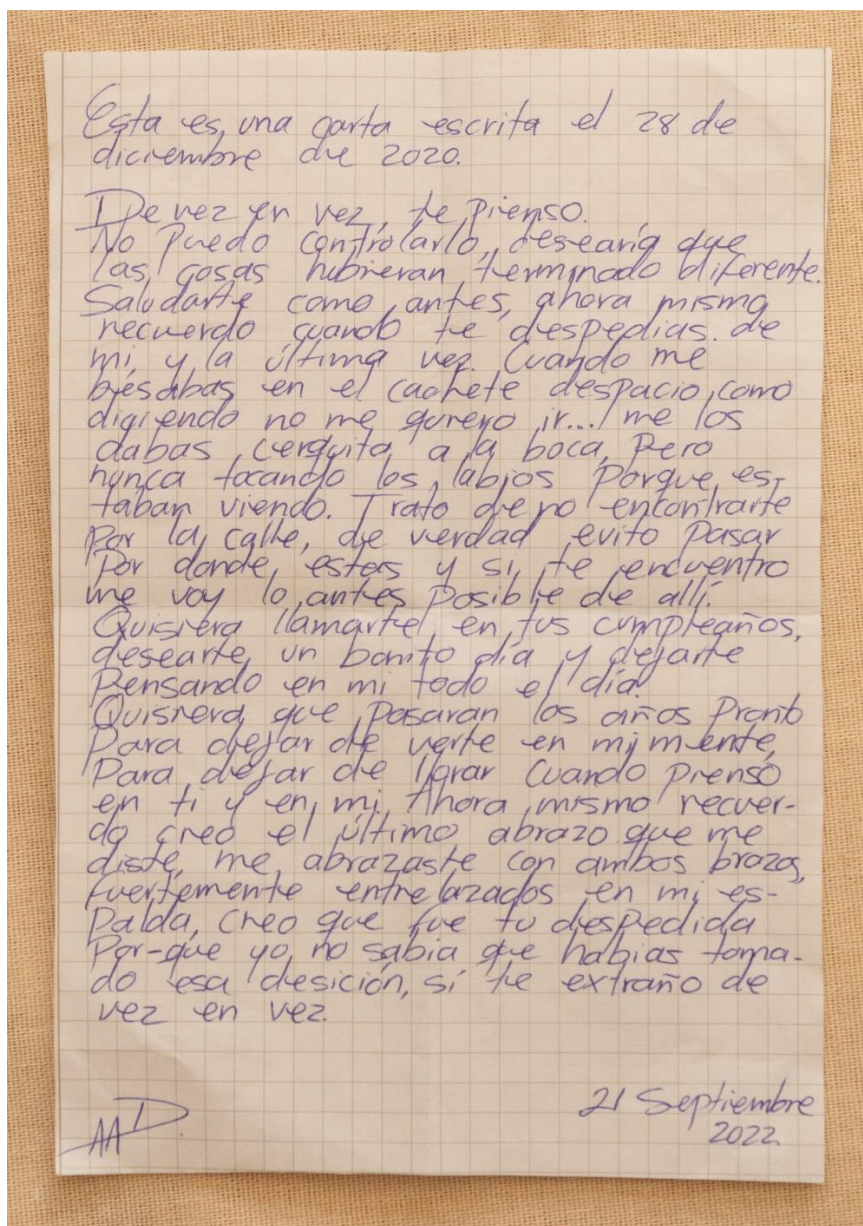 Esta es una carta escrita el 28 de
diciembre de 2020.
De vez en vez, te pienso.
No puedo controlarlo, desearía que
las cosas hubieran terminado diferente.
Saludarte como antes, ahora mismo
recuerdo cuando te despedias de
mi, y la última vez. Cuando me
besabas en el cachete despacio, como
digiendo no me quiero ir... me los
dabas cerquita a la boca, Pero
nunca tocando los labios porque es-
taban viendo. Trato de no encontrarte
Por la calle, de verdad evito pasar
Por donde estas y si te encuentro
me voy lo antes posible de allí.
Quisiera llamarte en tus cumpleaños,
desearte un bonito día y dejarte
Pensando en mi todo el día.
Quisiera que pasaran los años pronto
Para dejar de verte en mi mente,
Para dejar de llorar cuando pienso
en ti y en mi. Ahora mismo recuer-
do creo el último abrazo que me
diste, me abrazaste con ambos brazos,
fuertemente entrelazados en mi es-
Palda, creo que fue tu despedida
Por-que yo no sabia que habias toma-
do esa desición, sí te extraño de
vez en vez.
AAD.
21 Septiembre
2022